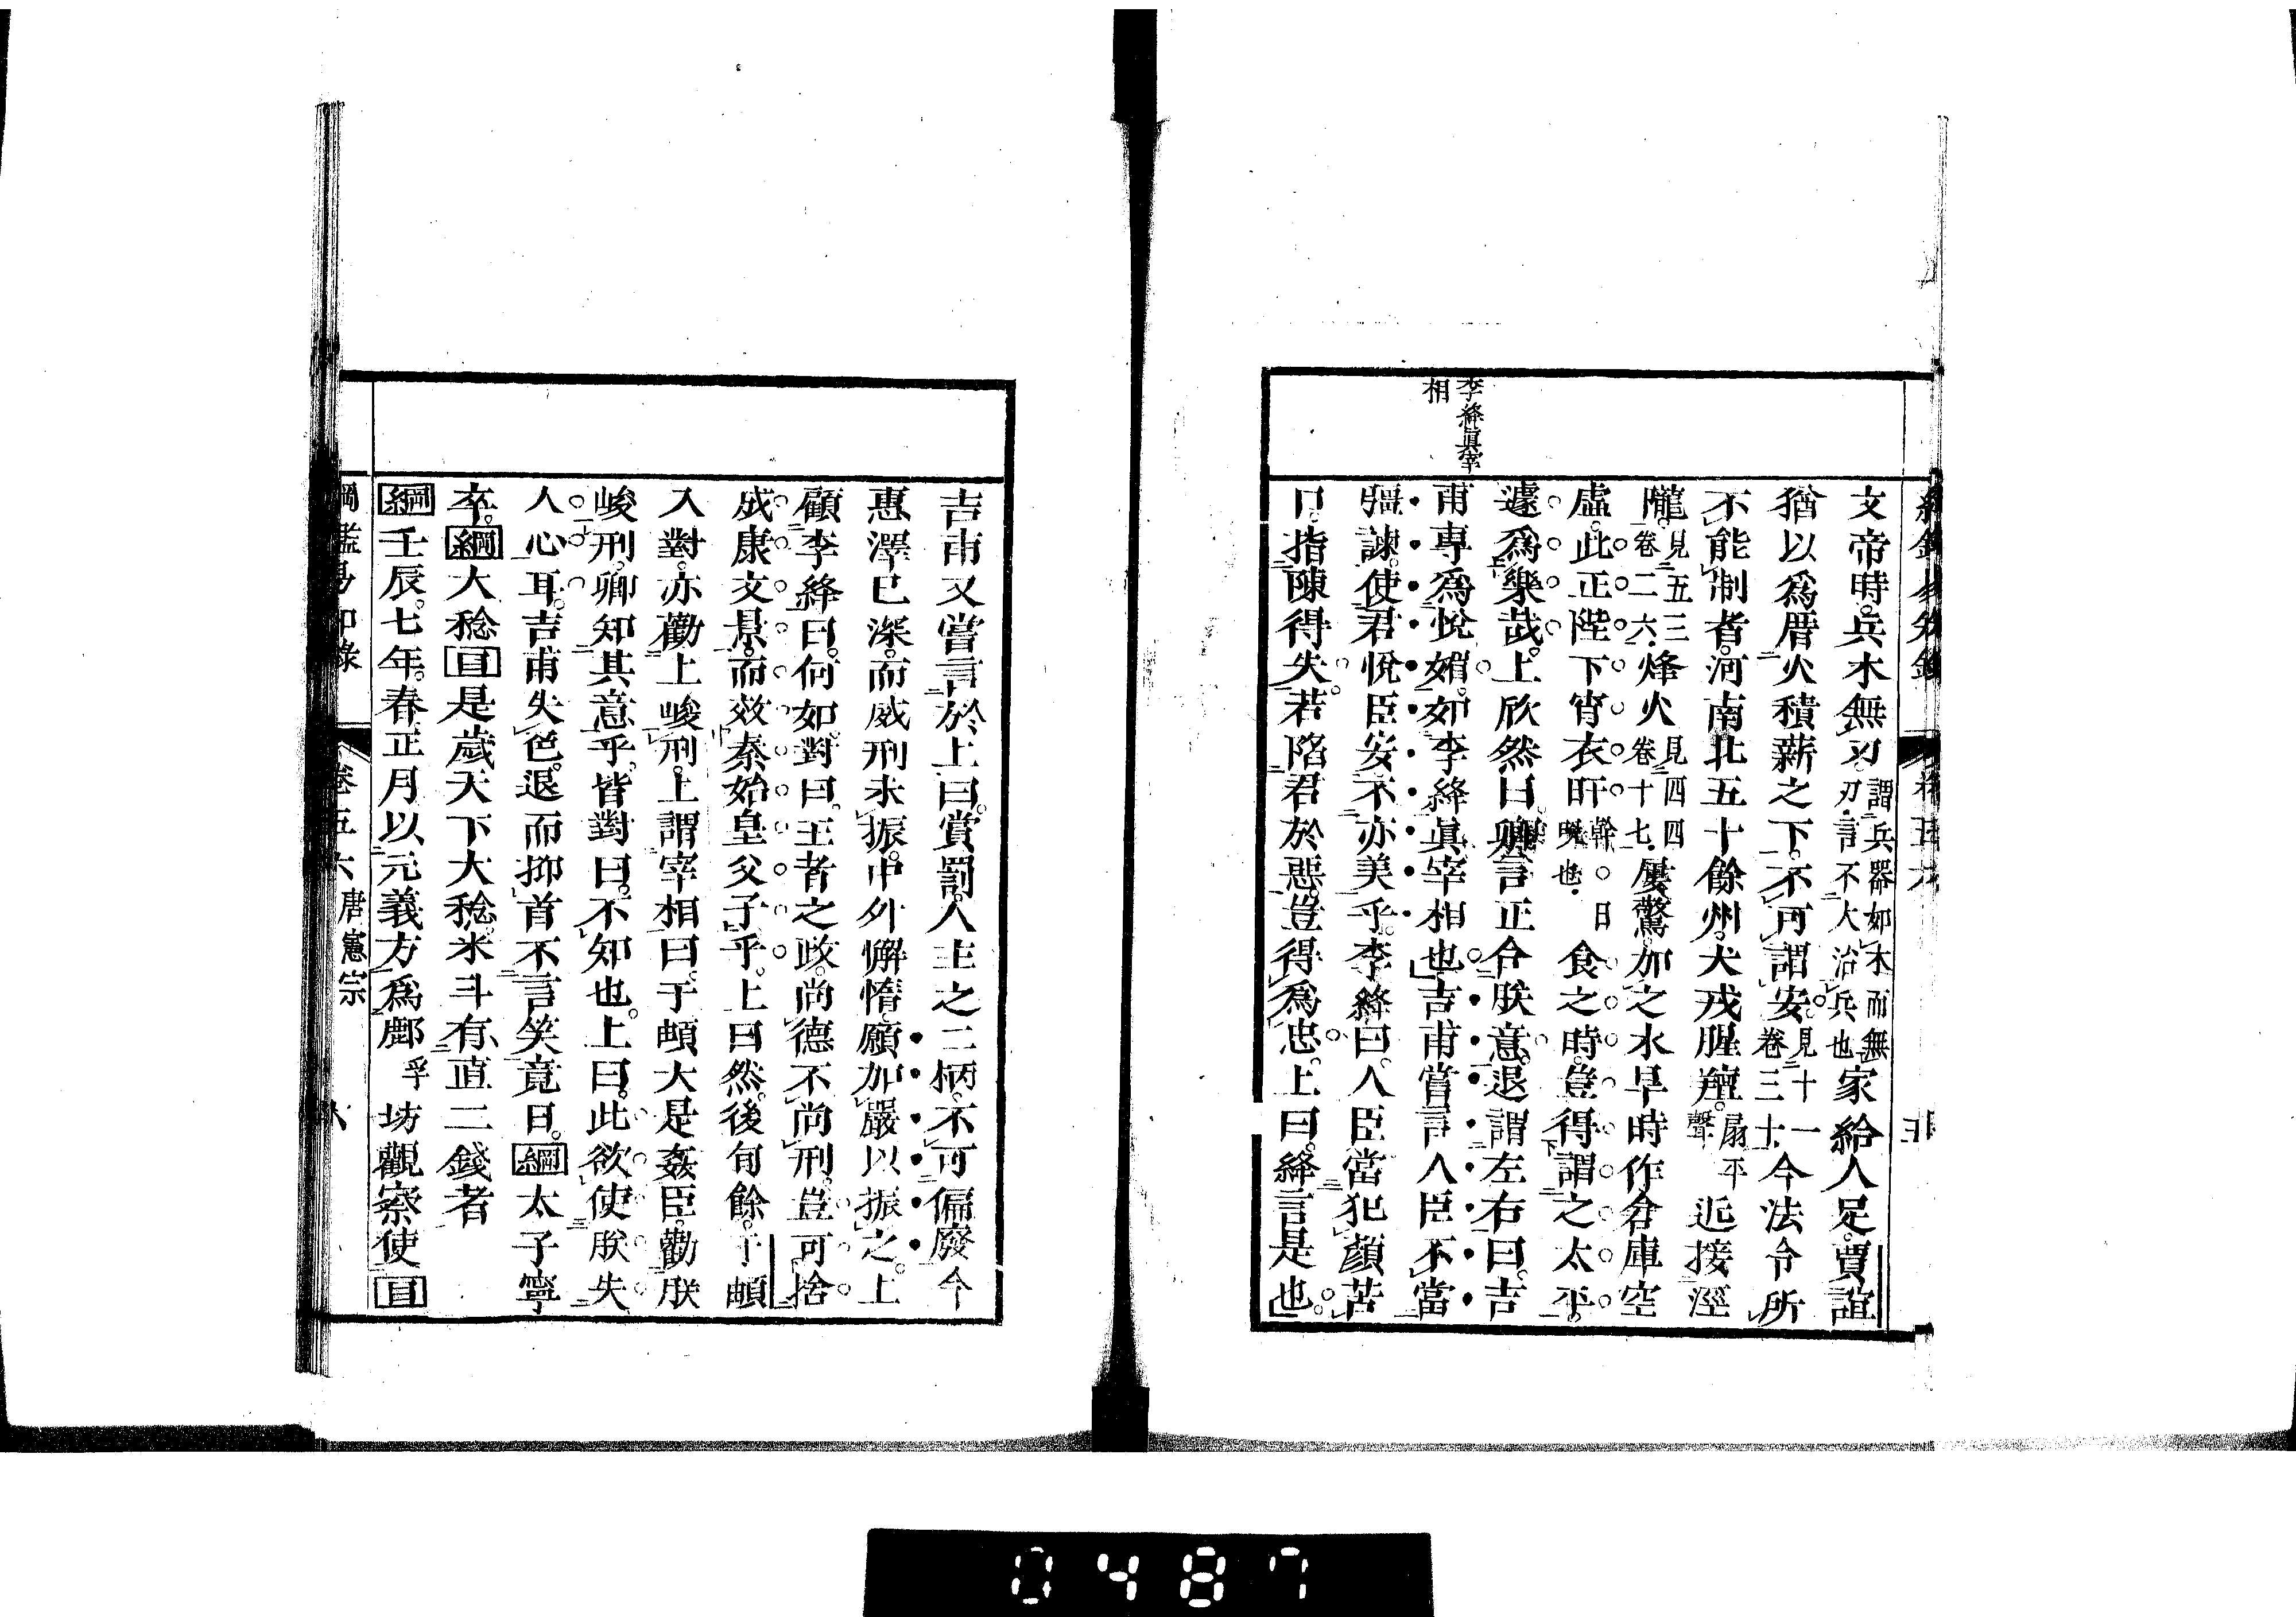 李絳眞宰
相
文帝時。兵木無刃。謂兵器如木而無刃。言不大治兵也家給人足。賈誼
猶以爲厝火積薪之下。不可謂安。見十一卷三十今法令所
不能制者。河南北五十餘州。犬戎腥羶。扇平聲近接涇
隴。見五三卷二六烽火見四四卷十七屢驚。加之水旱時作。倉庫空
虛。此正陛下宵衣旰幹。日晚也食之時。豈得謂之太平。
遽爲樂哉。上欣然曰。卿言正合朕意。退謂左右曰。吉
甫專爲悅媚。如李絳眞宰相也。吉甫嘗言人臣不當
彊諫。使君悅臣安。不亦美乎。李絳曰。人臣當犯顏苦
口。指陳得失。若陷君於惡。豈得爲忠。上曰。絳言是也。
吉甫又嘗言於上曰。賞罰。人主之二柄。不可偏廢。今
惠澤已深。而威刑未振。中外懈惰。願加嚴以振之。上
顧李絳曰。何如。對曰。王者之政。尚德不尚刑。豈可捨
成康文景。而效秦始皇父子乎。上曰然。後旬餘。于頔
入對。亦勸上峻刑。上謂宰相曰。于頔大是姦臣。勸朕
峻刑。卿知其意乎。皆對曰。不知也。上曰。此欲使朕失
人心耳。吉甫失色。退而抑首不言笑竟日。綱太子寧
卒。綱大稔目是歲天下大稔。米斗有直二錢者
綱壬辰。七年。春正月以元義方爲鄜孚坊觀察使目
綱鑑易知錄 卷五六 唐憲宗 六
0487